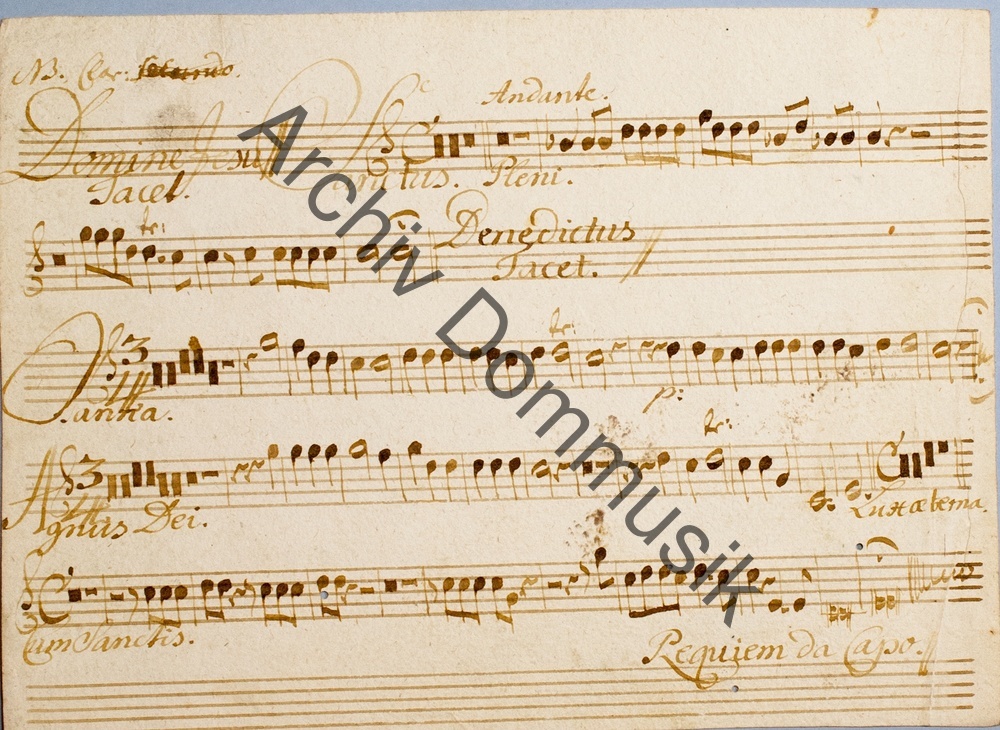 NB. Clar: secundo.
Andante.
Domine Jesu Sanctus. Pleni.
Tacet.
tr:
Benedictus
Tacet.
3
tr:
Osanna.
p:
3
tr:
Agnus Dei. Lux æterna.
Cum Sanctis.
Requiem da Capo.
Archiv Dommusik